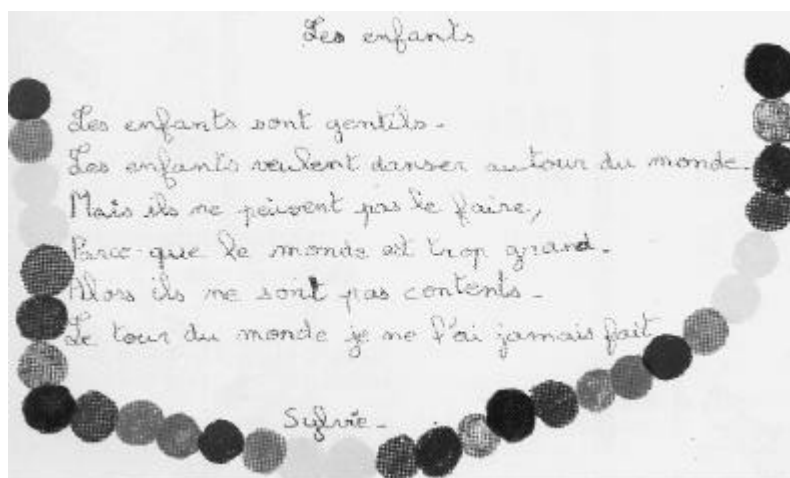 Les enfants
Les enfants sont gentils.
Les enfants veulent danser autour du monde.
Mais ils ne peuvent pas le faire,
Parce-que le monde est trop grand.
Alors ils ne sont pas contents.
Le tour du monde je ne l'ai jamais fait
Sylvie.